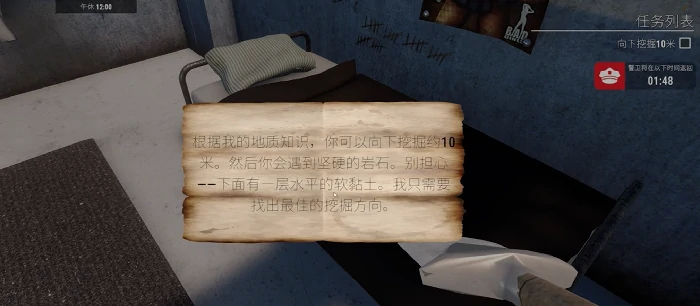 午休 12:00
任务列表
向下挖掘10米
警卫将在以下时间返回
01:48
根据我的地质知识，你可以向下挖掘约10
米。然后你会遇到坚硬的岩石。别担心
——下面有一层水平的软黏土。我只需要
找出最佳的挖掘方向。